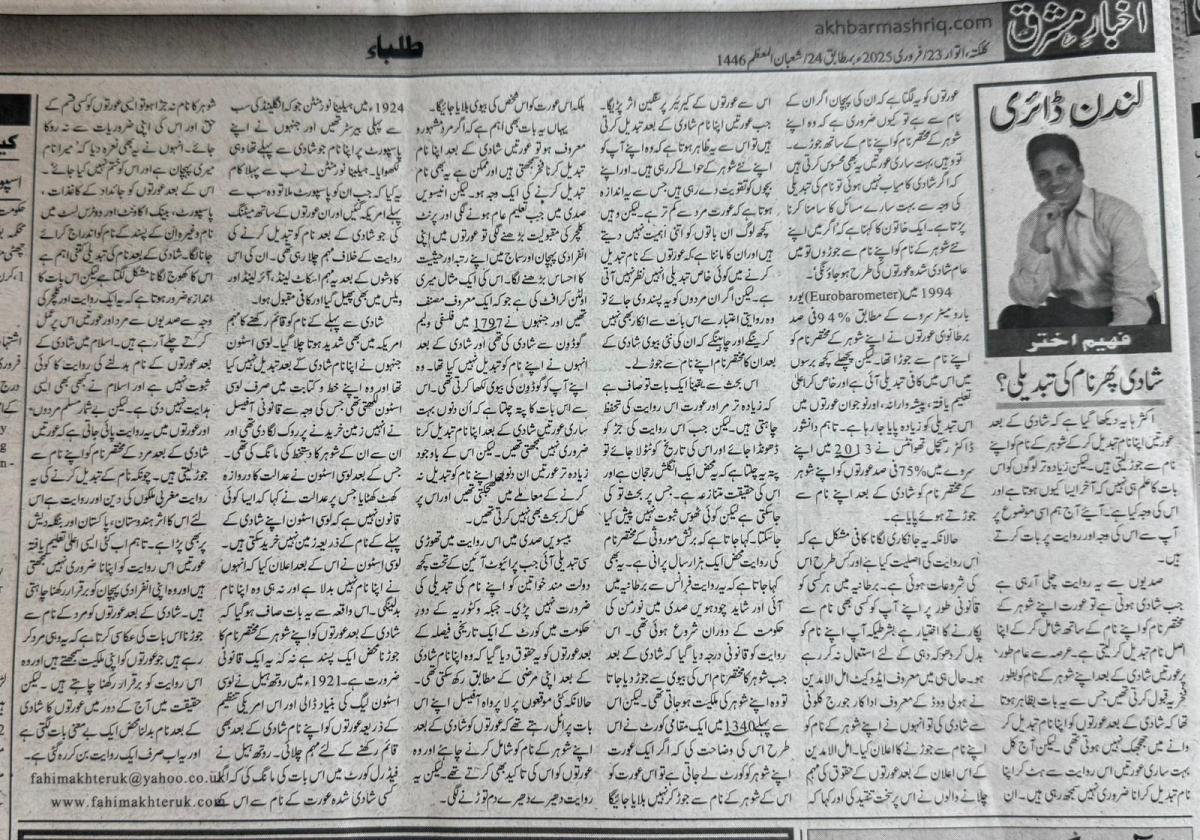 akhbarmashriq.com
اخبارِ مشرق
کلکتہ، اتوار 23/ فروری 2025ء بمطابق 24/ شعبان المعظم 1446
طلباء
لندن ڈائری
فہیم اختر
شادی پھر نام کی تبدیلی؟
اکثر یہ دیکھا گیا ہے کہ شادی کے بعد
عورتیں اپنا نام تبدیل کر کے شوہر کے نام کو اپنے
نام سے جوڑ لیتی ہیں۔ لیکن زیادہ تر لوگوں کو اس
بات کا علم ہی نہیں کہ آخر ایسا کیوں ہوتا ہے اور
اس کی وجہ کیا ہے۔ آیئے آج ہم اسی موضوع پر
آپ سے اس کی وجہ اور روایت پر بات کرتے
ہیں۔
صدیوں سے یہ روایت چلی آرہی ہے
جب شادی ہوتی ہے تو عورت اپنے شوہر کے
مختصر نام کو اپنے نام کے ساتھ شامل کر کے اپنا
اصل نام تبدیل کر لیتی ہے۔ عرصہ سے عام طور
پر عورتیں شادی کے بعد اپنے شوہر کے نام کو بطور
فخریہ قبول کرتی تھیں جس سے یہ بات بظاہر ہوتا
تھا کہ شادی کے بعد عورتوں کو اپنا نام تبدیل کر
وانے میں جھجھک نہیں ہوتی تھی۔ لیکن آج کل
بہت ساری عورتیں اس روایت سے ہٹ کر اپنا
نام تبدیل کرانا ضروری نہیں سمجھ رہی ہیں۔ ان
عورتوں کو یہ لگتا ہے کہ ان کی پہچان اگر ان کے
نام سے ہے تو کیوں ضروری ہے کہ وہ اپنے
شوہر کے مختصر نام کو اپنے نام کے ساتھ جوڑے۔
تو وہیں بہت ساری عورتیں یہ بھی محسوس کرتی ہیں
کہ اگر شادی کامیاب نہیں ہوئی تو نام کی تبدیلی
کی وجہ سے بہت سارے مسائل کا سامنا کرنا
پڑتا ہے۔ ایک خاتون کا کہنا ہے کہ اگر میں اپنے
نئے شوہر کے نام کو اپنے نام سے جوڑوں تو میں
عام شادی شدہ عورتوں کی طرح ہو جاؤنگی۔
1994 میں (Eurobarometer) یورو
بارو میٹر سروے کے مطابق %94 فی صد
برطانوی عورتوں نے اپنے شوہر کے مختصر نام کو
اپنے نام سے جوڑا تھا۔ لیکن پچھلے کچھ برسوں
میں اس میں کافی تبدیلی آئی ہے اور خاص کر اعلیٰ
تعلیم یافتہ، پیشہ ورانہ، اور نوجوان عورتوں میں
اس تبدیلی کو زیادہ پایا جا رہا ہے۔ تاہم دانشور
ڈاکٹر ریچل تھوائٹس نے 2013 میں اپنے
سروے میں %75 فی صد عورتوں کو اپنے شوہر
کے مختصر نام کو شادی کے بعد اپنے نام سے
جوڑتے ہوئے پایا ہے۔
حالانکہ یہ جانکاری لگانا کافی مشکل ہے کہ
اس روایت کی اصلیت کیا ہے اور کس طرح اس
کی شروعات ہوئی ہے۔ برطانیہ میں ہر کسی کو
قانونی طور پر اپنے آپ کو کسی بھی نام سے
پکارنے کا اختیار ہے بشرطیکہ آپ اپنے نام کو
بدل کر دھوکہ دہی کے لئے استعمال نہ کر رہے
ہو۔ حال ہی میں معروف ایڈوکیٹ امل الامدین
نے ہولی ووڈ کے معروف اداکار جورج کلونی
سے شادی کی تو انہوں نے اپنے شوہر کے نام کو
اپنے نام سے جوڑنے کا اعلان کیا۔ امل الامدین
کے اس اعلان کے بعد عورتوں کے حقوق کی مہم
چلانے والوں نے اس پر سخت تنقید کی اور کہا کہ
اس سے عورتوں کے کیریئر پر سنگین اثر پڑیگا۔
جب عورتیں اپنا نام شادی کے بعد تبدیل کرتی
ہیں تو اس سے یہ ظاہر ہوتا ہے کہ وہ اپنے آپ کو
اپنے نئے شوہر کے حوالے کر رہی ہیں۔ اور اپنے
بچوں کو تقویت دے رہی ہیں جس سے یہ اندازہ
ہوتا ہے کہ عورت مرد سے کم تر ہے۔ لیکن وہیں
کچھ لوگ ان باتوں کو اتنی اہمیت نہیں دیتے
ہیں اور ان کا ماننا ہے کہ عورتوں کے نام تبدیل
کرنے میں کوئی خاص تبدیلی انہیں نظر نہیں آتی
ہے۔ لیکن اگر ان مردوں کو یہ پسند دی جائے تو
وہ روایتی اعتبار سے اس بات سے انکار بھی نہیں
کرینگے اور چاہینگے کہ ان کی نئی بیوی شادی کے
بعد ان کا مختصر نام اپنے نام سے جوڑ لے۔
اس بحث سے یقیناً ایک بات تو صاف ہے
کہ زیادہ تر مرد اور عورت اس روایت کی تحفظ
چاہتی ہیں۔ لیکن جب اس روایت کی جڑ کو
ڈھونڈا جائے اور اس کی تاریخ کو ٹٹولا جائے تو
پتہ یہ چلتا ہے کہ یہ محض ایک انگلش رجحان ہے اور
اس کی حقیقت متنازعہ ہے۔ جس پر بحث تو کی
جاسکتی ہے لیکن کوئی ٹھوس ثبوت نہیں پیش کیا
جاسکتا۔ کہا جاتا ہے کہ برٹش موروثی کے مختصر نام
کی روایت محض ایک ہزار سال پرانی ہے۔ یہ بھی
کہا جاتا ہے کہ یہ روایت فرانس سے برطانیہ میں
آئی اور شاید چودھویں صدی میں نورمن کی
حکومت کے دوران شروع ہوئی تھی۔ اس
روایت کو قانونی درجہ دیا گیا کہ شادی کے بعد
جب شوہر کا مختصر نام اس کی بیوی سے جوڑ دیا جاتا
تو وہ اپنے شوہر کی ملکیت ہو جاتی تھی۔ لیکن اس
سے پہلے 1340 میں ایک مقامی کورٹ نے اس
طرح اس کی وضاحت کی کہ اگر ایک عورت
اپنے شوہر کو کورٹ لے جاتی ہے تو اس عورت کو
اس کے شوہر کے نام سے جوڑ کر نہیں بلایا جائیگا
بلکہ اس عورت کو اس شخص کی بیوی بلایا جائیگا۔
یہاں یہ بات بھی اہم ہے کہ اگر مرد مشہور و
معروف ہو تو عورتیں شادی کے بعد اپنا نام
تبدیل کرنا فخر بھی سمجھتی ہیں اور ممکن ہے یہ بھی نام
تبدیل کرنے کی ایک وجہ ہو۔ لیکن انیسویں
صدی میں جب تعلیم عام ہونے لگی اور پرنٹ
کلچر کی مقبولیت بڑھنے لگی تو عورتوں میں اپنی
انفرادی پہچان اور سماج میں اپنے رتبہ اور حیثیت
کا احساس بڑھنے لگا۔ اس کی ایک مثال میری
اولٹن کرافٹ کی ہے جو کہ ایک معروف مصنف
تھیں اور جنہوں نے 1797 میں فلسفی ولیم
گوڈون سے شادی کی تھی اور شادی کے بعد
انہوں نے اپنا نام تبدیل نہیں کیا تھا۔ وہ
اپنے آپ کو گوڈون کی بیوی لکھا کرتی تھی۔ اس
سے اس بات کا پتہ چلتا ہے کہ اُن دنوں بہت
ساری عورتیں شادی کے بعد اپنا نام تبدیل کرنا
ضروری نہیں سمجھتی تھیں۔ لیکن اس کے باوجود
زیادہ تر عورتیں ان دنوں اپنے نام کو تبدیل نہ
کرنے کے معاملے میں جھجکتی تھیں اور اس پر
کھل کر بحث بھی نہیں کرتی تھیں۔
بیسویں صدی میں اس روایت میں تھوڑی
سی تبدیلی آئی جب پرائیوٹ آئین کے تحت کچھ
دولت مند خواتین کو اپنے نام کی تبدیلی کی
ضرورت نہیں پڑی۔ جبکہ وکٹوریہ کے دور
حکومت میں کورٹ کے ایک تاریخی فیصلہ کے
بعد عورتوں کو یہ حقوق دیا گیا کہ وہ اپنا نام شادی
کے بعد اپنی مرضی کے مطابق رکھ سکتی تھی۔
حالانکہ کئی موقعوں پر لا پرواہ آفیسل اپنے اس
بات پر اٹل رہتے تھے کہ عورتوں کو شادی کے بعد
اپنے شوہر کے نام کو شامل کرنے چاہئے اور وہ
عورتوں کو اس کی تاکید بھی کرتے تھے۔ لیکن یہ
روایت دھیرے دھیرے دم توڑنے لگی۔
1924ء میں ہیلینا نورمنٹن جو کہ انگلینڈ کی سب
سے پہلی بیرسٹر تھیں اور جنہوں نے اپنے
پاسپورٹ پر اپنا نام جو شادی سے پہلے تھا وہی
لکھوایا۔ ہیلینا نورمنٹن نے سب سے پہلا کام
یہ کیا کہ جب ان کو پاسپورٹ ملا تو وہ سب سے
پہلے امریکہ گئیں اور ان عورتوں کے ساتھ میٹنگ
کی جو شادی کے بعد نام کو تبدیل کرنے کی
روایت کے خلاف مہم چلا رہی تھی۔ ان کی اس
کاوشوں کے بعد یہ مہم اسکاٹ لینڈ، آئرلینڈ اور
ویلس میں بھی پھیل گیا اور کافی مقبول ہوا۔
شادی سے پہلے کے نام کو قائم رکھنے کا مہم
امریکہ میں بھی شدید ہوتا چلا گیا۔ لوسی اسٹون
جنہوں نے اپنا نام شادی کے بعد تبدیل نہیں کیا
تھا اور وہ اپنے خط و کتابت میں صرف لوسی
اسٹون لکھتی تھی جس کی وجہ سے قانونی آفیسل
نے انہیں زمین خریدنے پر روک لگا دی تھی اور
ان سے ان کے شوہر کا دستخط کی مانگ کی تھی۔
جس کے بعد لوسی اسٹون نے عدالت کا دروازہ
کھٹکھٹایا جس پر عدالت نے کہا کہ ایسا کوئی
قانون نہیں ہے کہ لوسی اسٹون اپنے شادی کے
پہلے نام کے ذریعہ زمین نہیں خرید سکتی ہیں۔
لوسی اسٹون نے اس کے بعد اعلان کیا کہ انہوں
نے اپنا نام نہیں بدلا ہے اور نہ ہی وہ اپنا نام
بدلینگی۔ اس واقعہ سے یہ بات صاف ہو گیا کہ
شادی کے بعد عورتوں کو اپنے شوہر کے مختصر نام کا
جوڑنا محض ایک پسند ہے نہ کہ یہ ایک قانونی
ضرورت ہے۔ 1921ء میں روتھ ہیل نے لوسی
اسٹون لیگ کی بنیاد ڈالی اور اس امریکی تنظیم
کے ذریعہ عورتوں کو اپنے شادی کے پہلے نام کو
قائم رکھنے کے لئے مہم چلائی۔ روتھ ہیل نے
فیڈرل کورٹ میں اس بات کی مانگ کی کہ اگر
کسی شادی شدہ عورت کے نام سے اس کے
شوہر کا نام نہ جڑا ہو تو ایسی عورتوں کو کسی قسم کے
حق اور اس کی اپنی ضروریات سے نہ روکا
جائے۔ انہوں نے یہ بھی نعرہ دیا کہ 'میرا نام
میری پہچان ہے اور اس کو ختم نہیں کیا جائے'۔
اس کے بعد عورتوں کو جائداد کے کاغذات،
پاسپورٹ، بینک اکاؤنٹ اور ووٹرس لسٹ میں
نام وغیرہ ان کے پسند کے نام کو اندراج کرائے
جانا لگا۔ شادی کے بعد نام کی تبدیلی کتنی اہم ہے
اس کا کھوج لگانا مشکل لگتا ہے لیکن اس بات کا
اندازہ ضرور ہوتا ہے کہ یہ ایک روایت اور کلچر کی
وجہ سے صدیوں سے مرد اور عورتیں اس پر عمل
کرتے چلے آ رہے ہیں۔ اسلام میں شادی کے
بعد عورتوں کے نام بدلنے کی روایت کا کوئی
ثبوت نہیں ہے اور اسلام نے بھی بھی ایسی
ہدایت نہیں دی ہے۔ لیکن بے شمار مسلم مردوں
اور عورتوں میں یہ روایت پائی جاتی ہے کہ عورتیں
شادی کے بعد مرد کے مختصر نام کو اپنے نام سے
جوڑ لیتی ہیں۔ چونکہ نام کے تبدیل کرنے کی یہ
روایت مغربی ملکوں کی دین اور روایت ہے اس
لئے اس کا اثر ہندوستان، پاکستان اور بنگلہ دیش
پر بھی پڑا ہے۔ تاہم اب کئی ایسی اعلیٰ تعلیم یافتہ
عورتیں اس روایت کو اپنانا ضروری نہیں سمجھتی
ہیں اور وہ اپنی انفرادی پہچان کو برقرار رکھنا چاہتی
ہیں۔ شادی کے بعد عورتوں کو مرد کے نام سے
جوڑنا اس بات کی عکاسی کرتا ہے کہ یہ وہی مرد کر
رہے ہیں جو عورتوں کو اپنی ملکیت سمجھتے ہیں اور وہ
اس روایت کو برقرار رکھنا چاہتے ہیں۔ لیکن
حقیقت میں آج کے دور میں عورتوں کا شادی
کے بعد نام بدلنا محض ایک بے معنی بات لگتی ہے
اور یہ اب صرف ایک روایت بن کر رہ گئی ہے۔
fahimakhteruk@yahoo.co.uk
www.fahimakhteruk.com